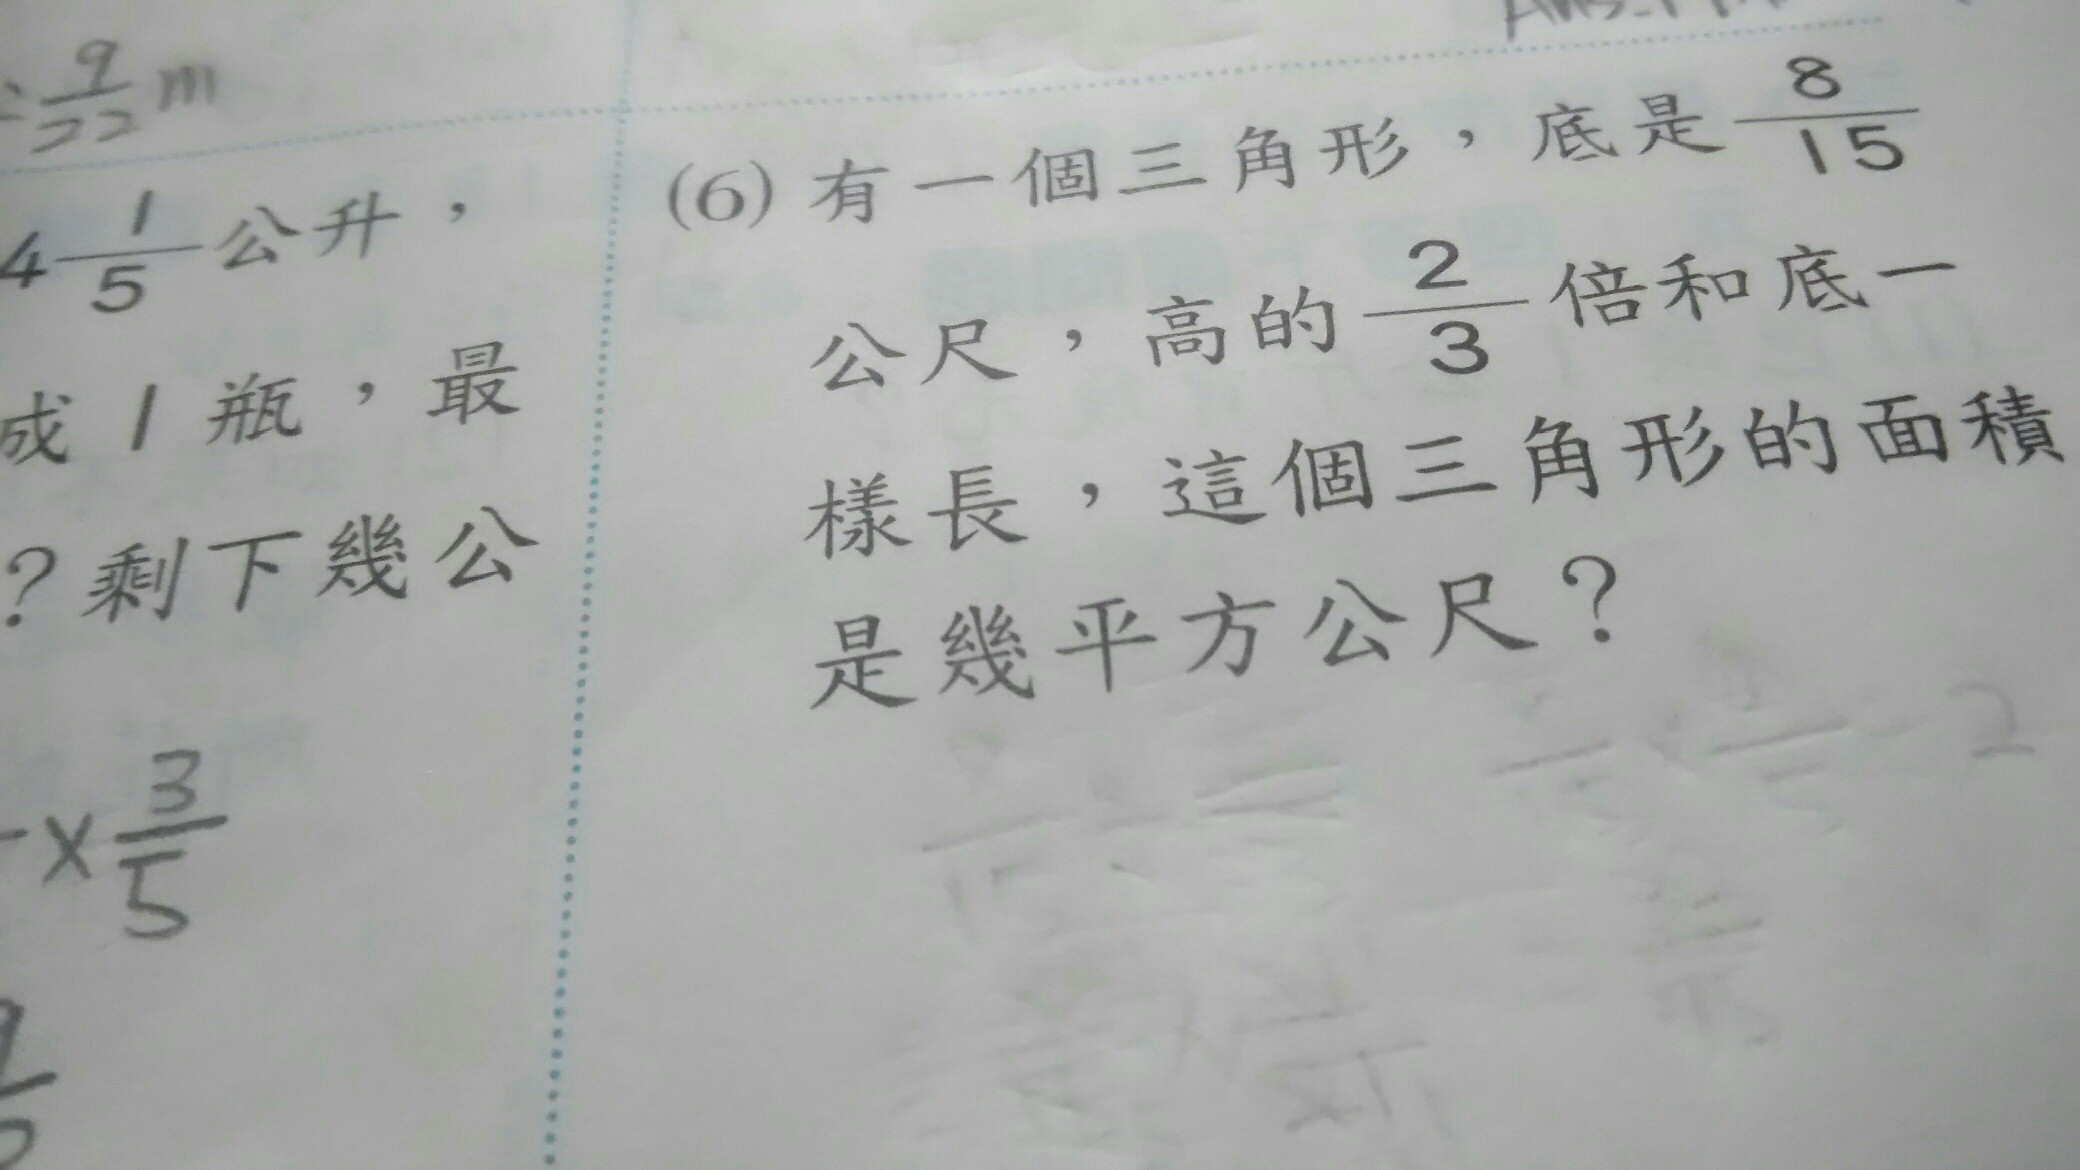 9/22 m
4 1/5 公升,
成 1 瓶,最
?剩下幾公
× 3/5
(6) 有一個三角形,底是 8/15
公尺,高的 2/3 倍和底一
樣長,這個三角形的面積
是幾平方公尺?